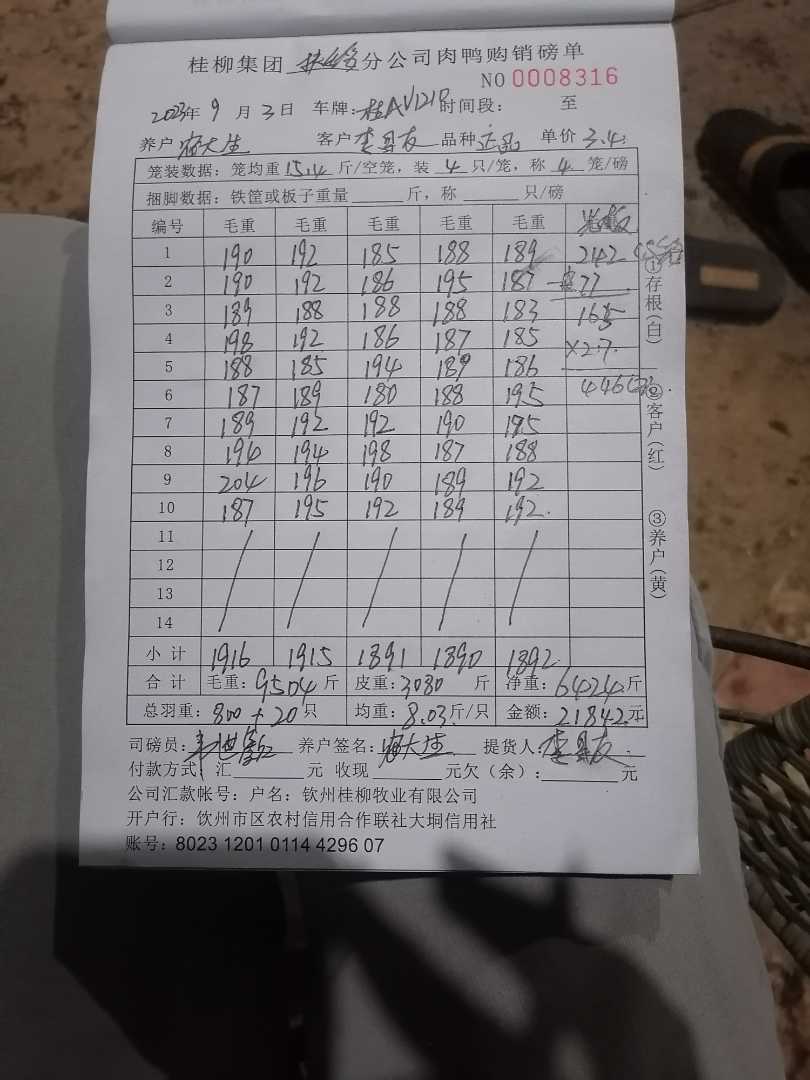 桂柳集团 扶绥 分公司肉鸭购销磅单
NO 0008316
2023年 9月 3日 车牌：桂AV121P 时间段： 至
养户 客户 品种 正品 单价 3.4
笼装数据：笼均重 15.4 斤/空笼，装 4 只/笼，称 4 笼/磅
捆脚数据：铁筐或板子重量 斤，称 只/磅
编号 毛重 毛重 毛重 毛重 毛重
1 190 192 185 188 189 242
2 190 192 186 195 187 - 77
3 189 188 188 188 183 165
4 198 192 186 187 185 ×2.7
5 188 185 194 189 186
6 187 189 180 188 195 446
7 189 192 192 190 195
8 194 194 198 187 188
9 204 196 190 189 192
10 187 195 192 189 192
11 / / / / /
12
13
14
小计 1916 1915 1891 1890 1892
合计 毛重：9504 斤 皮重：3080 斤 净重：6424 斤
总羽重：800 + 20 只 均重：8.03 斤/只 金额：21842 元
司磅员： 养户签名： 提货人：
付款方式：汇 元 收现 元欠（余）： 元
公司汇款帐号：户名：钦州桂柳牧业有限公司
开户行：钦州市区农村信用合作联社大垌信用社
账号：8023 1201 0114 4296 07
①存根（白）
②客户（红）
③养户（黄）